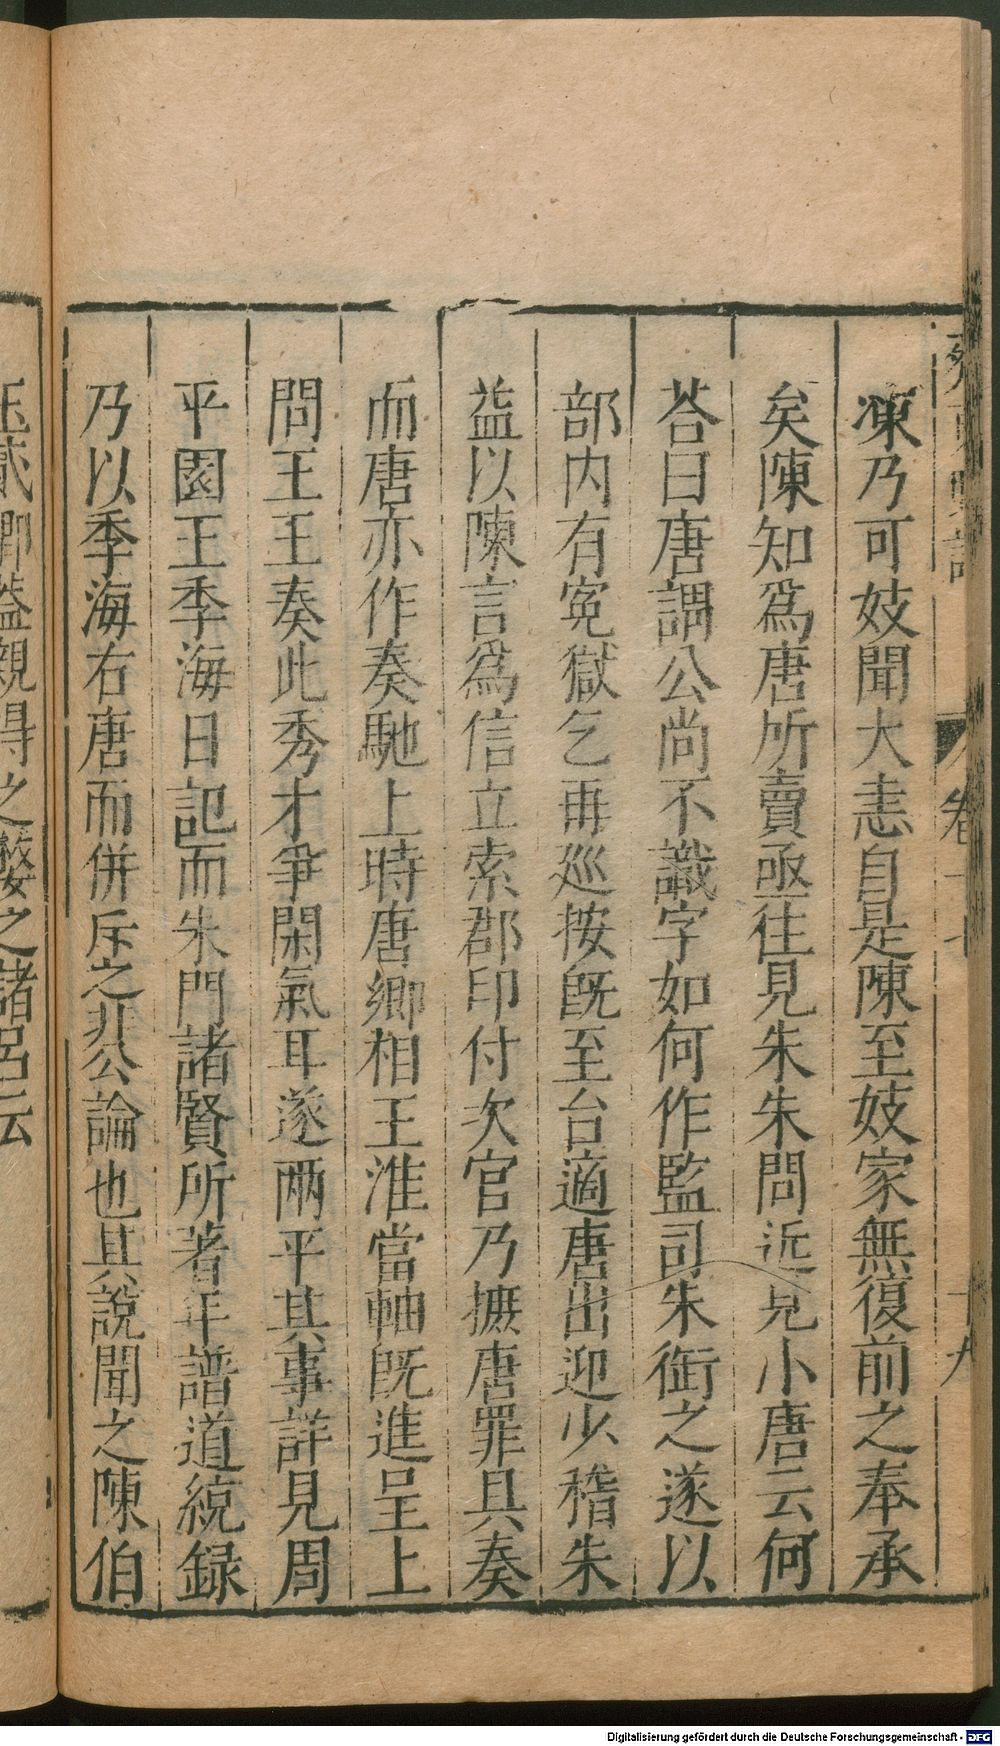 凍乃可妓聞大恚自是陳至妓家無復前之奉承
矣陳知爲唐所賣亟徃見朱朱問近見小唐云何
荅曰唐謂公尚不識字如何作監司朱銜之遂以
部内有寃獄乞再巡按旣至台適唐出迎少稽朱
益以陳言爲信立索郡印付次官乃摭唐罪具奏
而唐亦作奏馳上時唐鄉相王淮當軸旣進呈上
問王王奏此秀才爭閑氣耳遂兩平其事詳見周
平園王季海日記而朱門諸賢所著年譜道統録
乃以季海右唐而併斥之非公論也其說聞之陳伯
玉貳卿葢親得之婺之諸呂云
卷十七
十九
Digitalisierung gefördert durch die Deutsche Forschungsgemeinschaft - DFG